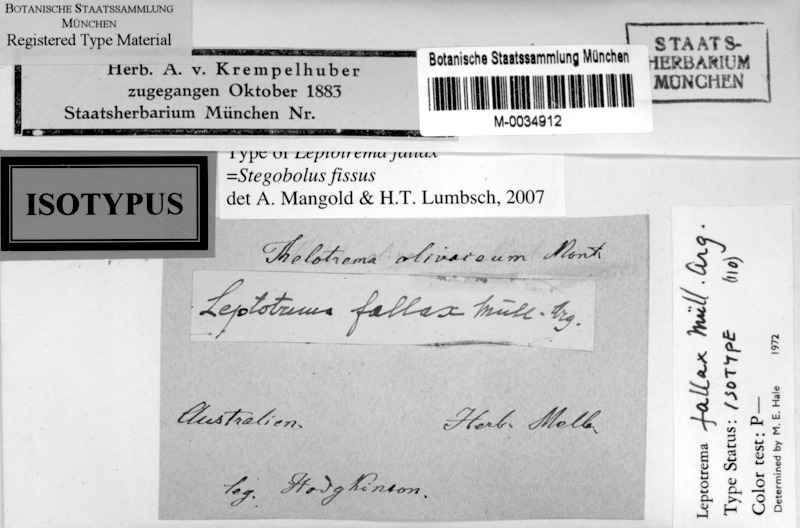 BOTANISCHE STAATSSAMMLUNG
MÜNCHEN
Registered Type Material
Herb. A. v. Krempelhuber
zugegangen Oktober 1883
Staatsherbarium München Nr.
Botanische Staatssammlung München
M-0034912
STAATS-
HERBARIUM
MÜNCHEN
ISOTYPUS
Type of Leptotrema fallax
=Stegobolus fissus
det A. Mangold & H.T. Lumbsch, 2007
Thelotrema olivaceum Mont
Leptotrema fallax Müll. Arg.
Australien. Herb. Melb.
leg. Hodgkinson.
Leptotrema fallax Müll. Arg.
Type Status: ISOTYPE (110)
Color test: P—
Determined by M. E. Hale 1972